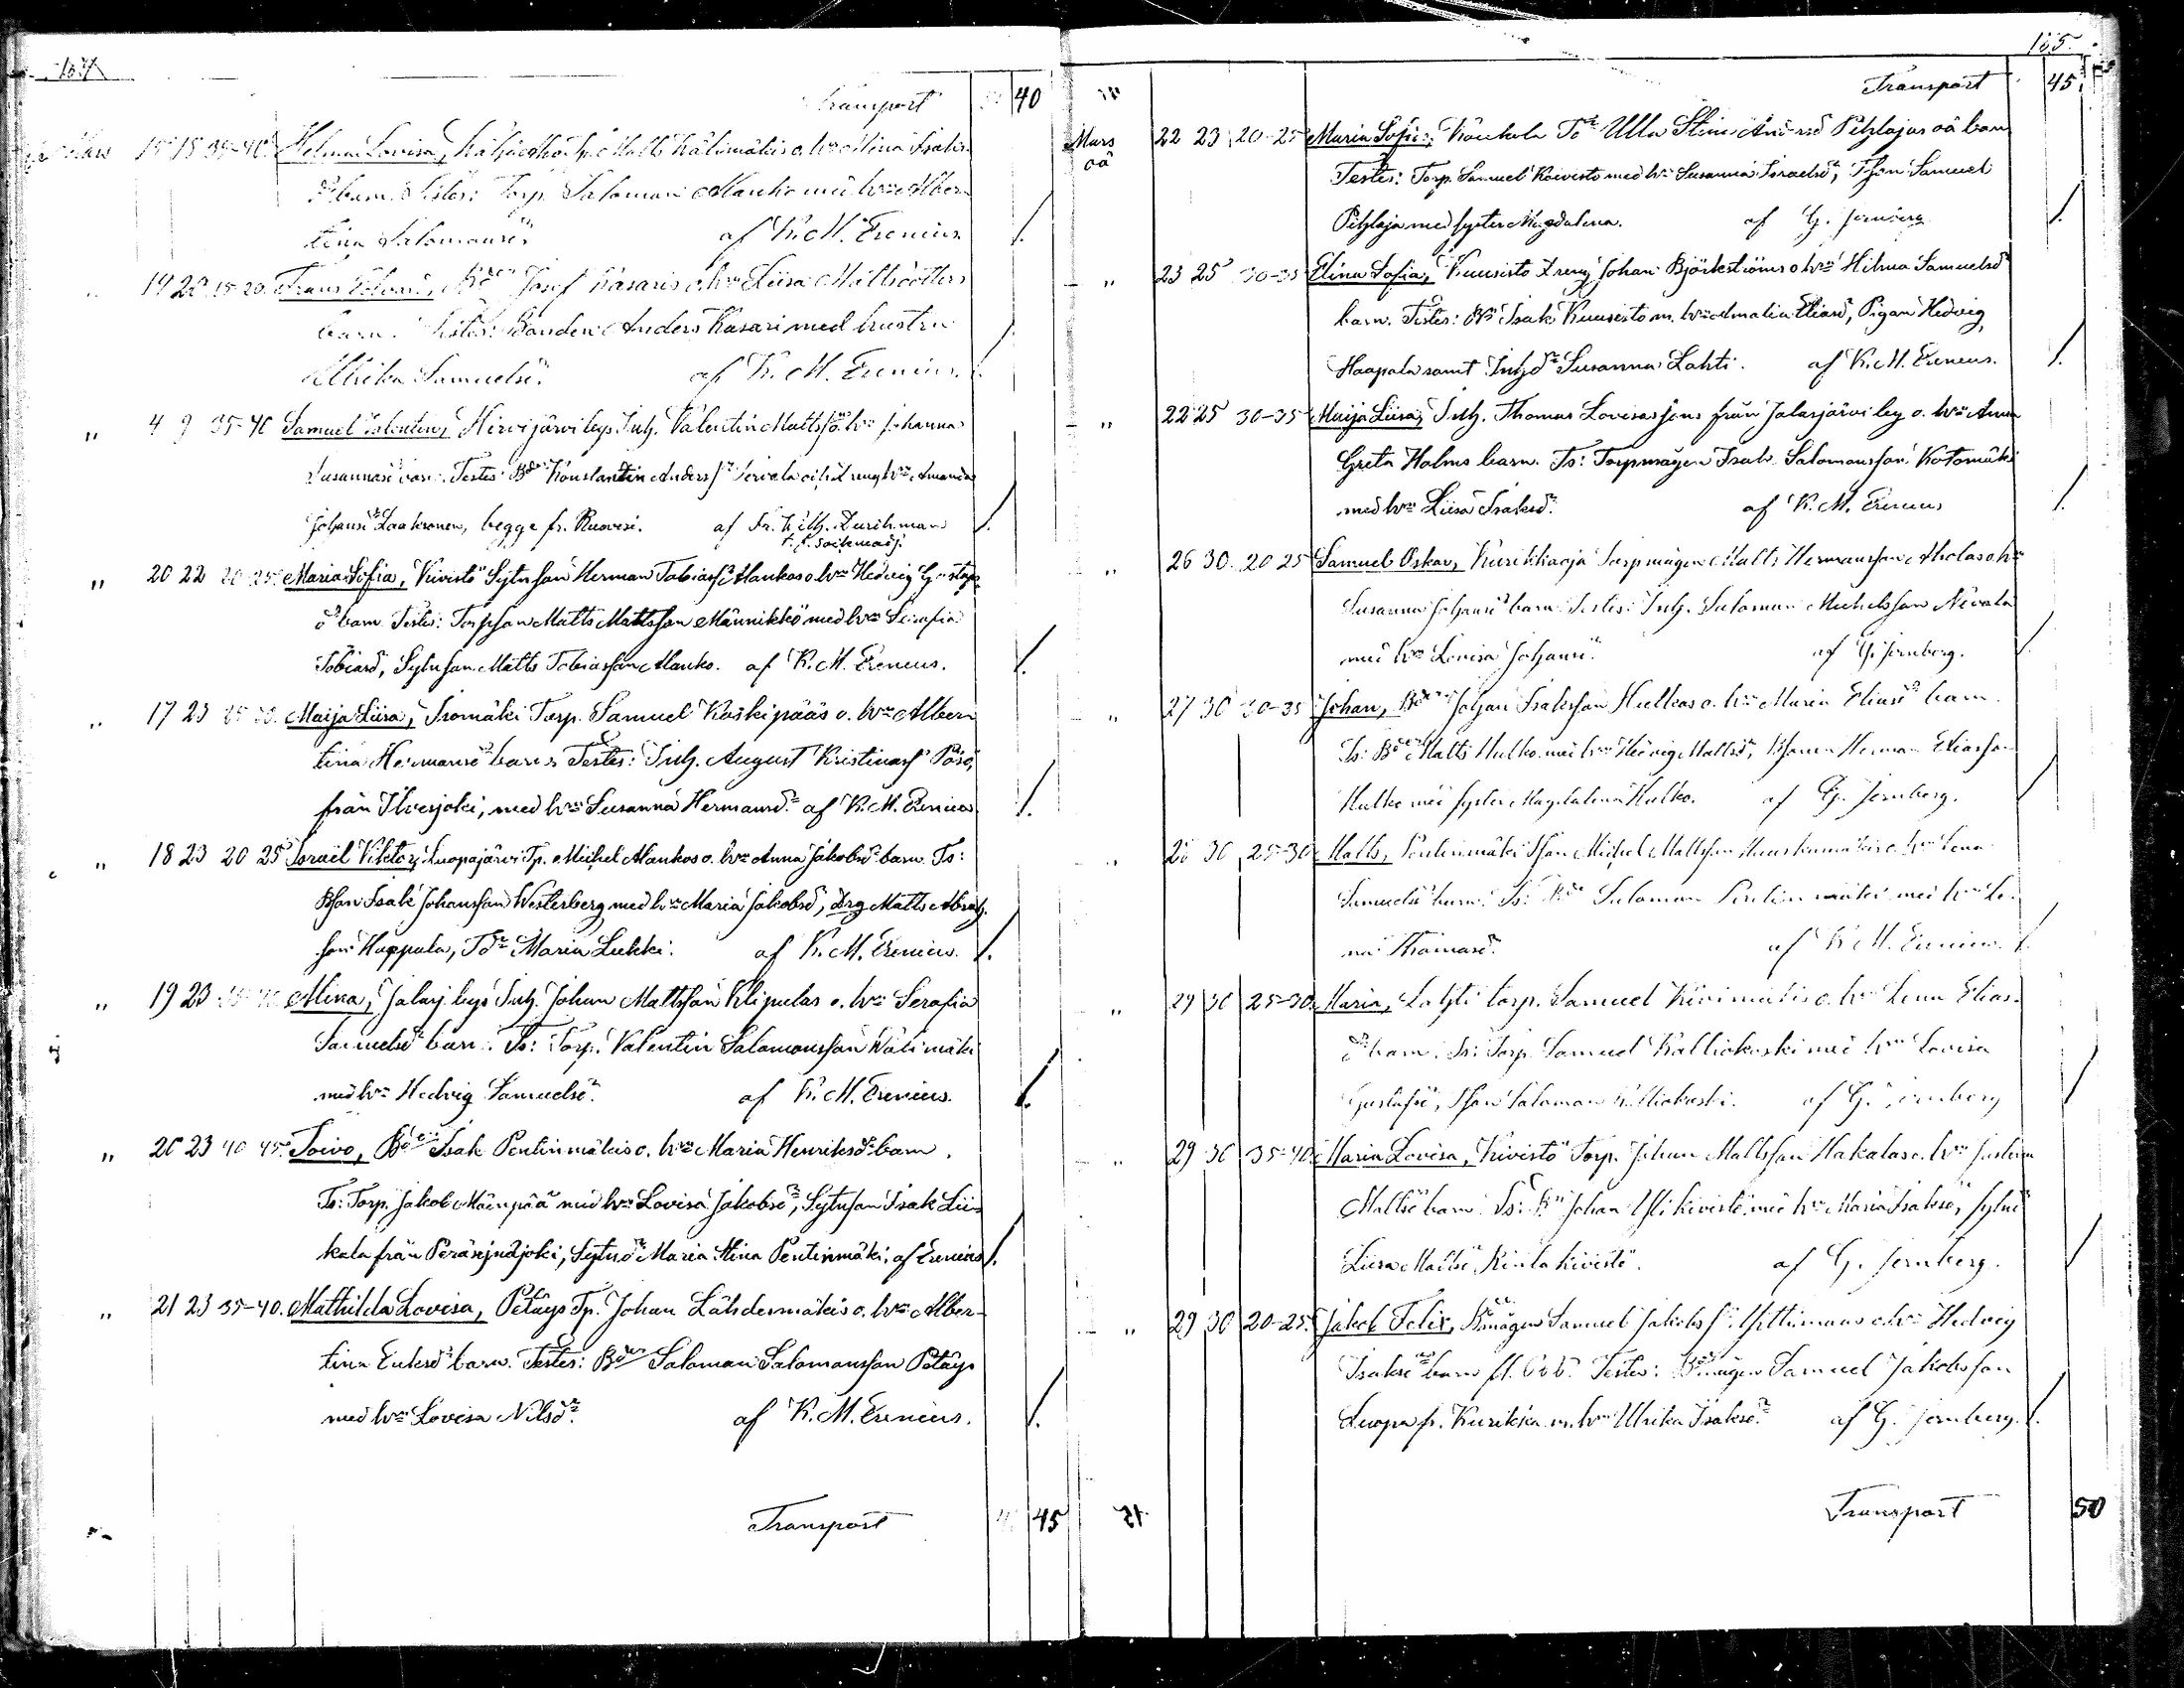 Transport 40
Mars 15 15 35-40. Helma Lovisa, Matts Välimäkis o. hn Mina Isaks
d barn. Testes: Torp. Salomon Manko med hn Alber
tina Salomonsd. af K. M. Erenius.
" 19 20 15-20. Frans Edvard, Bd Josef Kasaris o. hn Liisa Mattsdotters
barn. Testes: Bonden Anders Kasari med hustru
Ulrika Samuelsd. af K. M. Erenius.
" 4 9 35-40 Samuel Valentin, Hirvijärvi bys Inh. Valentin Mattsson o. hn Johanna
Susannasd barn. Testes: Bd Konstantin Anders hn Amanda
Johansd Laakronen, begge fr. Ruovesi. af Fr. Wilh. Durchman
" 20 22 20-25. Maria Sofia, Kivistö Sytn.son Herman Tobias Mankos o. hn Hedvig Gustafs
d barn. Testes: Torp.son Matts Mattsson Männikkö med hn Serafia
Tobiasd, Sytn.son Matts Tobiasson Manko. af K. M. Erenius.
" 17 23 25-30. Maija Liisa, Isomäki Torp. Samuel Koskipääs o. hn Alber
tina Hermansd barn. Testes: Inh. August Kristinas
från Ilvesjoki, med hn Susanna Hermansd. af K. M. Erenius
" 18 23 20 25 Israel Viktor, Luopajärvi Tp. Michel Mankos o. hn Anna Jakobsd barn. Ts:
Bson Isak Johansson Westerberg med hn Maria Jakobsd, Drg Matts Abrah.
son Happala, Td Maria Lukki. af K. M. Erenius.
" 19 23 Mina, Jalasj. bys Inh. Johan Mattsson Klipulas o. hn Serafia
Samuelsd barn. Ts: Torp. Valentin Salomonsson Wälimäki
med hn Hedvig Samuelsd. af K. M. Erenius.
" 20 23 40 45. Toivo, Bd Isak Pentinmäkis o. hn Maria Henriksd barn.
Ts: Torp. Jakob Mäenpää med hn Lovisa Jakobsd, Sytn.son Isak Lii
kala från Peräseinäjoki, Sytn.d Maria Stina Pentinmäki, af Erenius
" 21 23 35-40. Mathilda Lovisa, Petäys Tp. Johan Lähdesmäkis o. hn Alber-
tina Eriksd barn. Testes: Bd Salomon Salomonsson Petäys
med hn Lovisa Nilsd. af K. M. Erenius.
Transport 45
185.
Transport 45
Mars oä 22 23 20-25 Maria Sofia, Koukola Td Ulla Stina And Pihlajas oä barn
Testes: Torp. Samuel Koivisto med hn Susanna Israelsd, Tson Samuel
Pihlaja med syster Magdalena. af G. Jernberg
" 23 25 30-35 Elina Sofia, Kuusisto Dreng Johan Björkströms o. hn Hilma Samuelsd
barn. Testes: Bd Isak Kuusisto m. hn Amalia Eliasd, Pigan Hedvig
Haapala samt Inh.d Susanna Lahti. af K. M. Erenius.
" 22 25 30-35 Maija Liisa, Inh. Thomas Lovisassons från Jalasjärvi by o. hn Anna
Greta Holms barn. Ts: Torpmågen Isak Salomonsson Kotomäki
med hn Liisa Isaksd. af K. M. Erenius
" 26 30. 20 25 Samuel Oskar, Kurikkaoja Torpmågen Matts Hermansson Aholas o. hn
Susanna Johansd barn. Testes: Inh. Salomon Michelsson Nevala
med hn Lovisa Johansd. af G. Jernberg.
" 27 30 30-35 Johan, Bd Johan Isaksson Hulkos o. hn Maria Eliasd barn.
Ts: Bd Matts Hulko med hn Hedvig Mattsd, Bsonen Herman Eliasson
Hulko med syster Magdalena Hulko. af G. Jernberg.
" 28 30 25-30 Matts, Pentinmäki Michel Mattsson o. hn Lena
Samuelsd barn. Ts: Bd Salomon Pentinmäki med hn Le-
na Thomasd. af K. M. Erenius.
" 29 30 25-30. Maria, Lahti torp. Samuel Kivimäkis o. hn Lena Elias-
d barn. Ts: Torp. Samuel Kalliokoski med hn Lovisa
Gustafsd, Tson Salomon Kalliokoski. af G. Jernberg
" 29 30 35-40. Maria Lovisa, Kivistö Torp. Johan Mattsson Hakalas o. hn Justina
Mattsd barn. Ts: Bd Johan Ylikivistö med hn Maria Isaksd, Sytn.d
Liisa Mattsd Rintakivistö. af G. Jernberg.
" 29 30 20-25. Jakob Felix, Bmågen Samuel Jakobs o. hn Hedvig
Isaksd barn Testes: Bmågen Samuel Jakobsson
Luopa fr. Kurikka m. hn Ulrika Isaksd. af G. Jernberg.
Transport 50